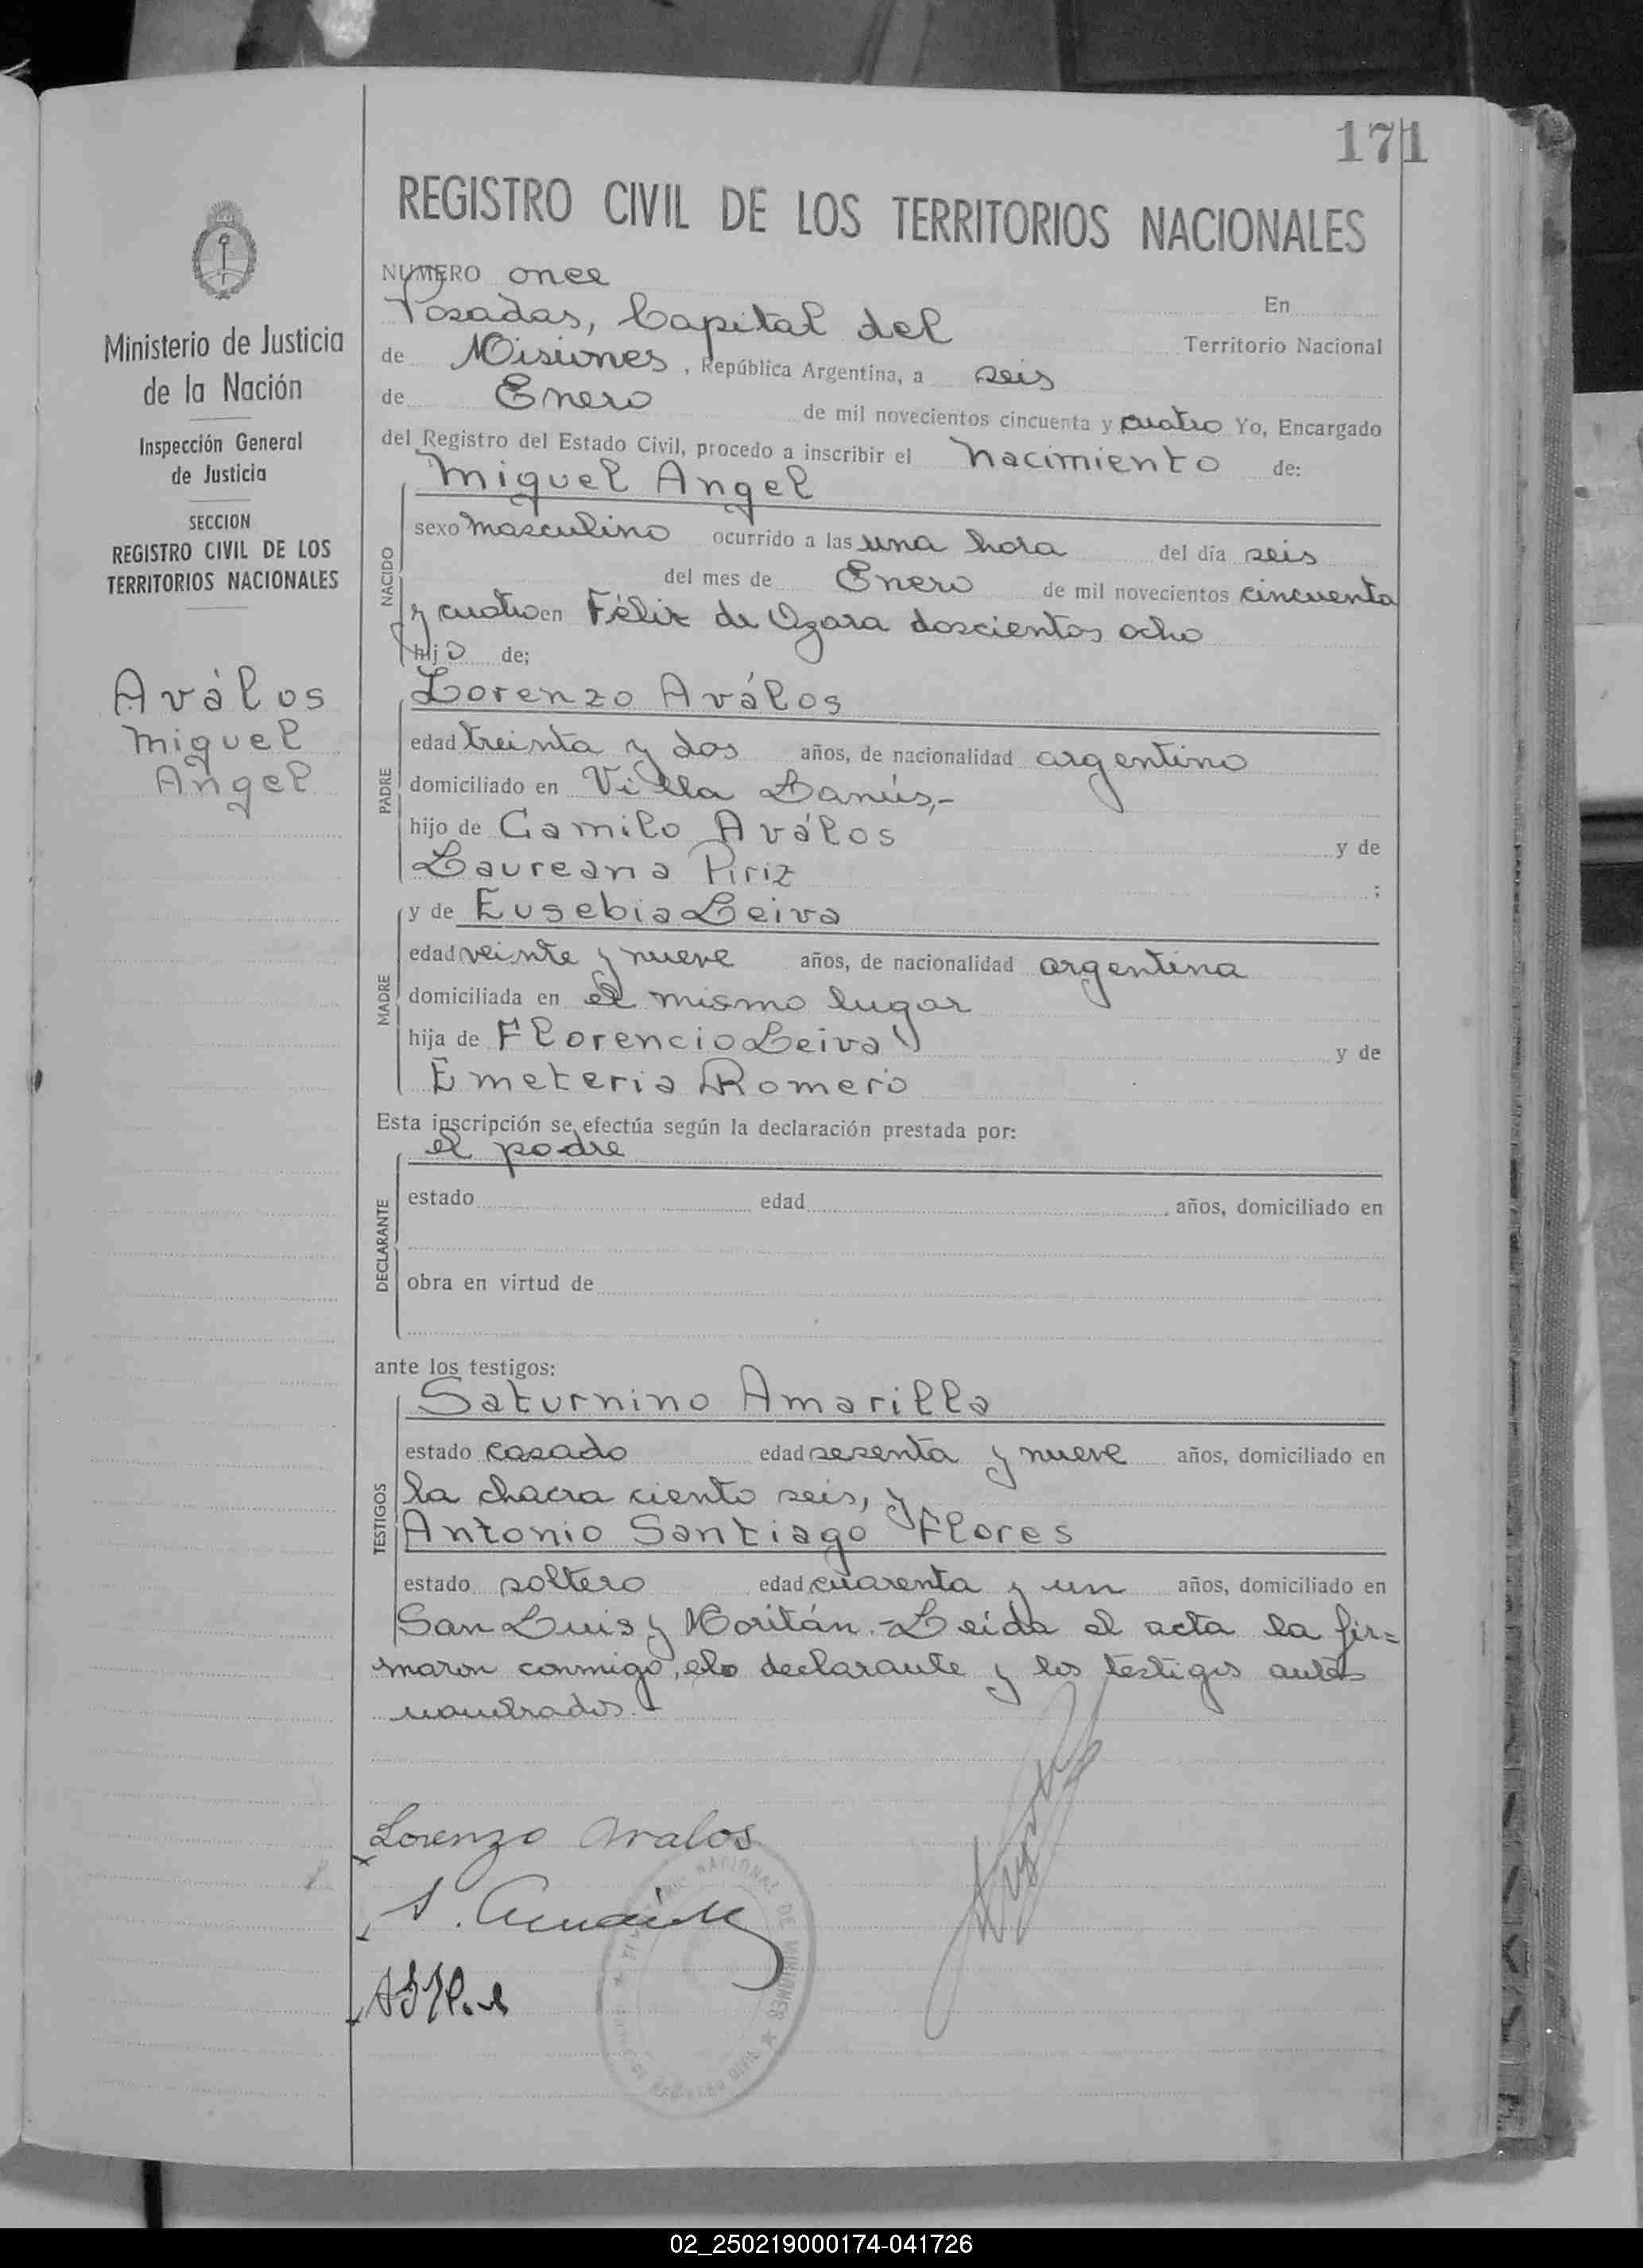 171
REGISTRO CIVIL DE LOS TERRITORIOS NACIONALES
Ministerio de Justicia
de la Nación
Inspección General
de Justicia
SECCION
REGISTRO CIVIL DE LOS
TERRITORIOS NACIONALES
Aválos
Miguel
Angel
NUMERO once
En
Posadas, Capital del
Territorio Nacional
de Misiones, República Argentina, a seis
de Enero de mil novecientos cincuenta y cuatro Yo, Encargado
del Registro del Estado Civil, procedo a inscribir el Nacimiento de:
NACIDO
Miguel Angel
sexo masculino ocurrido a las una hora del día seis
del mes de Enero de mil novecientos cincuenta
y cuatro en Félix de Azara doscientos ocho
hijo de;
PADRE
Lorenzo Aválos
edad treinta y dos años, de nacionalidad argentino
domiciliado en Villa Lanús,-
hijo de Camilo Aválos y de
Laureana Piriz ;
MADRE
y de Eusebia Leiva
edad veinte y nueve años, de nacionalidad argentina
domiciliada en el mismo lugar
hija de Florencio Leiva y de
Emeteria Romero
Esta inscripción se efectúa según la declaración prestada por:
DECLARANTE
el padre
estado edad, años, domiciliado en
obra en virtud de
ante los testigos:
TESTIGOS
Saturnino Amarilla
estado casado edad sesenta y nueve años, domiciliado en
la chacra ciento seis, y
Antonio Santiago Flores
estado soltero edad cuarenta y un años, domiciliado en
San Luis y Moritán.=Leída el acta la fir=
maron conmigo, el declarante y los testigos antes
nombrados.
Lorenzo Avalos
S. Amarilla
NACIONAL DE MISIONES
02_250219000174-041726